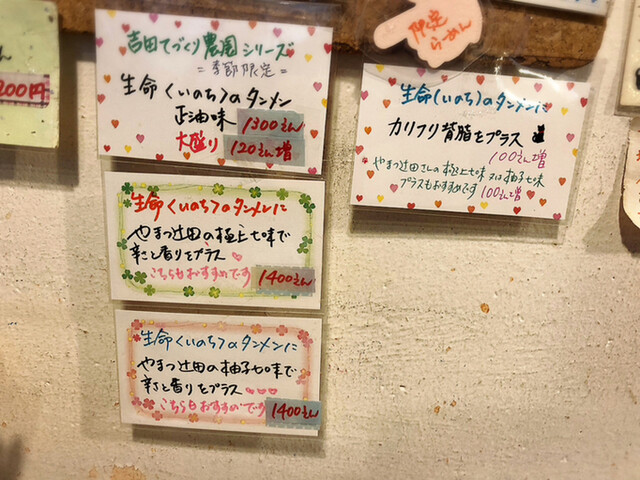 吉田てづくり農園シリーズ
=季節限定=
生命〈いのち〉のタンメン
正油味 1300えん
大盛り 120えん増
生命〈いのち〉のタンメンに
やまつ辻田の極上七味で
辛さと香りをプラス
こちらもおすすめです 1400えん
生命〈いのち〉のタンメンに
やまつ辻田の柚子七味で
辛さと香りをプラス
こちらもおすすめです 1400えん
限定
らーめん
生命(いのち)のタンメンに
カリフリ背脂をプラス
100えん増
やまつ辻田さんの極上七味又は柚子七味
プラスもおすすめです 100えん増
200円